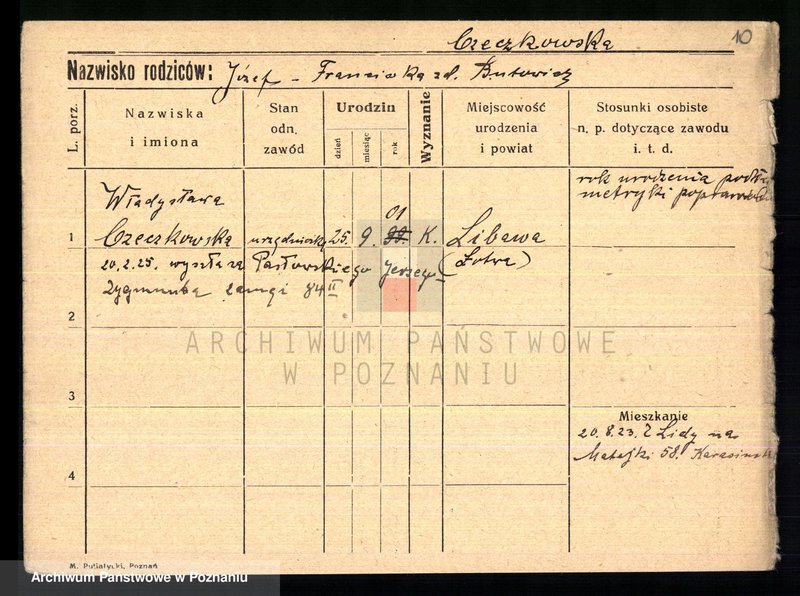 Czeczkowska
10
Nazwisko rodziców: Józef - Franciszka zd. Butowicz
L. porz.
Nazwiska
i imiona
Stan
odn.
zawód
Urodzin
dzień
miesiąc
rok
Wyznanie
Miejscowość
urodzenia
i powiat
Stosunki osobiste
n. p. dotyczące zawodu
i. t. d.
rok urodzenia podług
metryki
Władysława
01
1 Czeczkowska urzędniczka 25. 9. 99. K. Libawa
20.2.25. wyszła za Pasłowskiego Jerzego (Łotwa)
Zygmunta II
2
ARCHIWUM PAŃSTWOWE
W POZNANIU
3
Mieszkanie
20.8.23. Z Lidy na
4
Matejki 58.
M. Putiatycki, Poznań
Archiwum Państwowe w Poznaniu